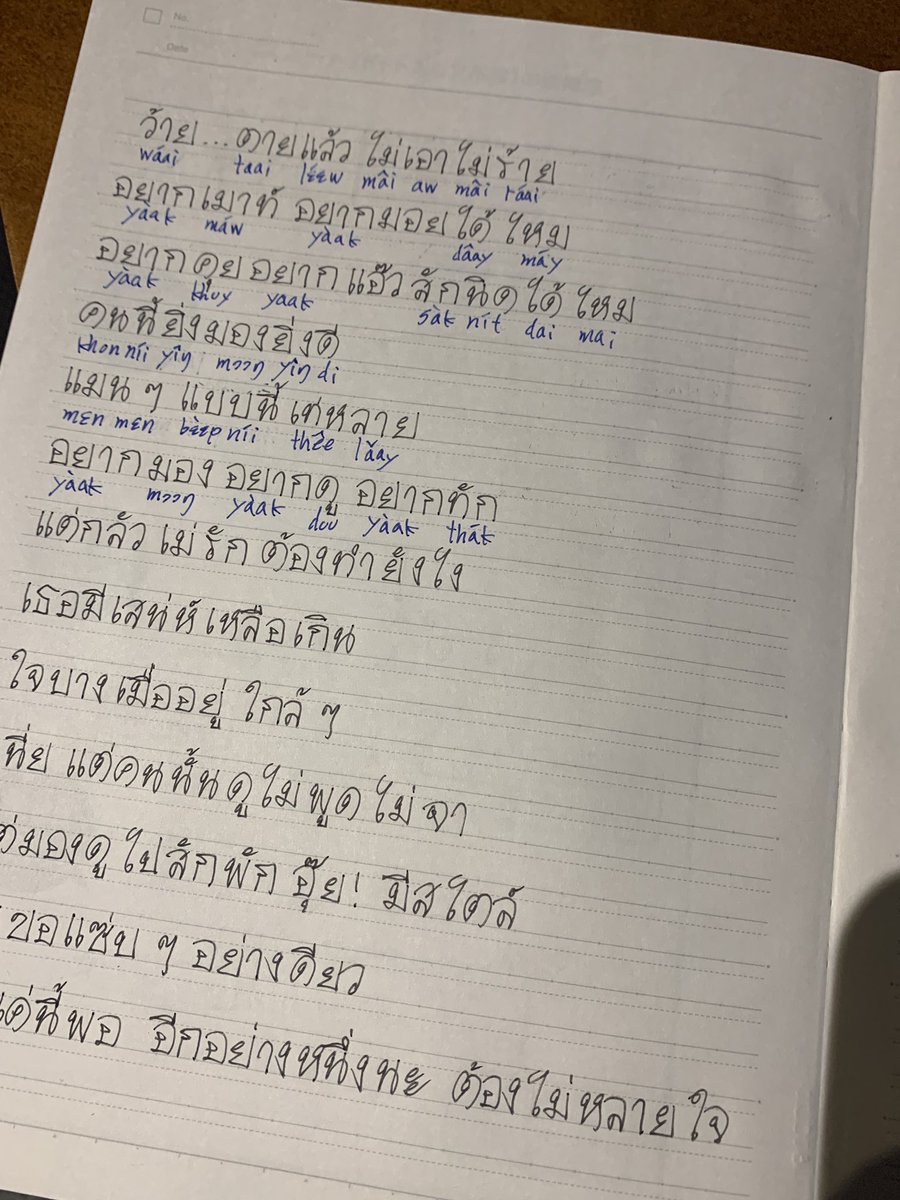 No.
Date
ว้าย... ตายแล้ว ไม่เอาไม่ร้าย
wáai taai lɛ́ɛw mâi aw mâi ráai
อยากเมาท์ อยากมอยได้ ไหม
yàak máw yàak dâay mǎy
อยากคุย อยากแอ๊ว สักนิดได้ ไหม
yàak khuy yaak sàk nít dai mai
คนนี้ยิ่งมองยิ่งดี
khon níi yîŋ mɔɔŋ yîŋ di
แมน ๆ แบบนี้ เท่หลาย
mɛn mɛn bɛ̀ɛp níi thêe lǎay
อยากมอง อยากดู อยากทัก
yàak mɔɔŋ yàak duu yàak thák
แต่กลัว เม่รัก ต้องทำยังไง
เธอมีเสน่ห์เหลือเกิน
ใจบางเมื่ออยู่ ใกล้ ๆ
นี่ย แต่คนนั้นดูไม่พูดไม่จา
ต่มองดูไปสักพัก อุ๊ย! มีสไตล์
ขอแซ่บ ๆ อย่างเดียว
แค่นี้พอ อีกอย่างหนึ่งนะ ต้องไม่หลายใจ